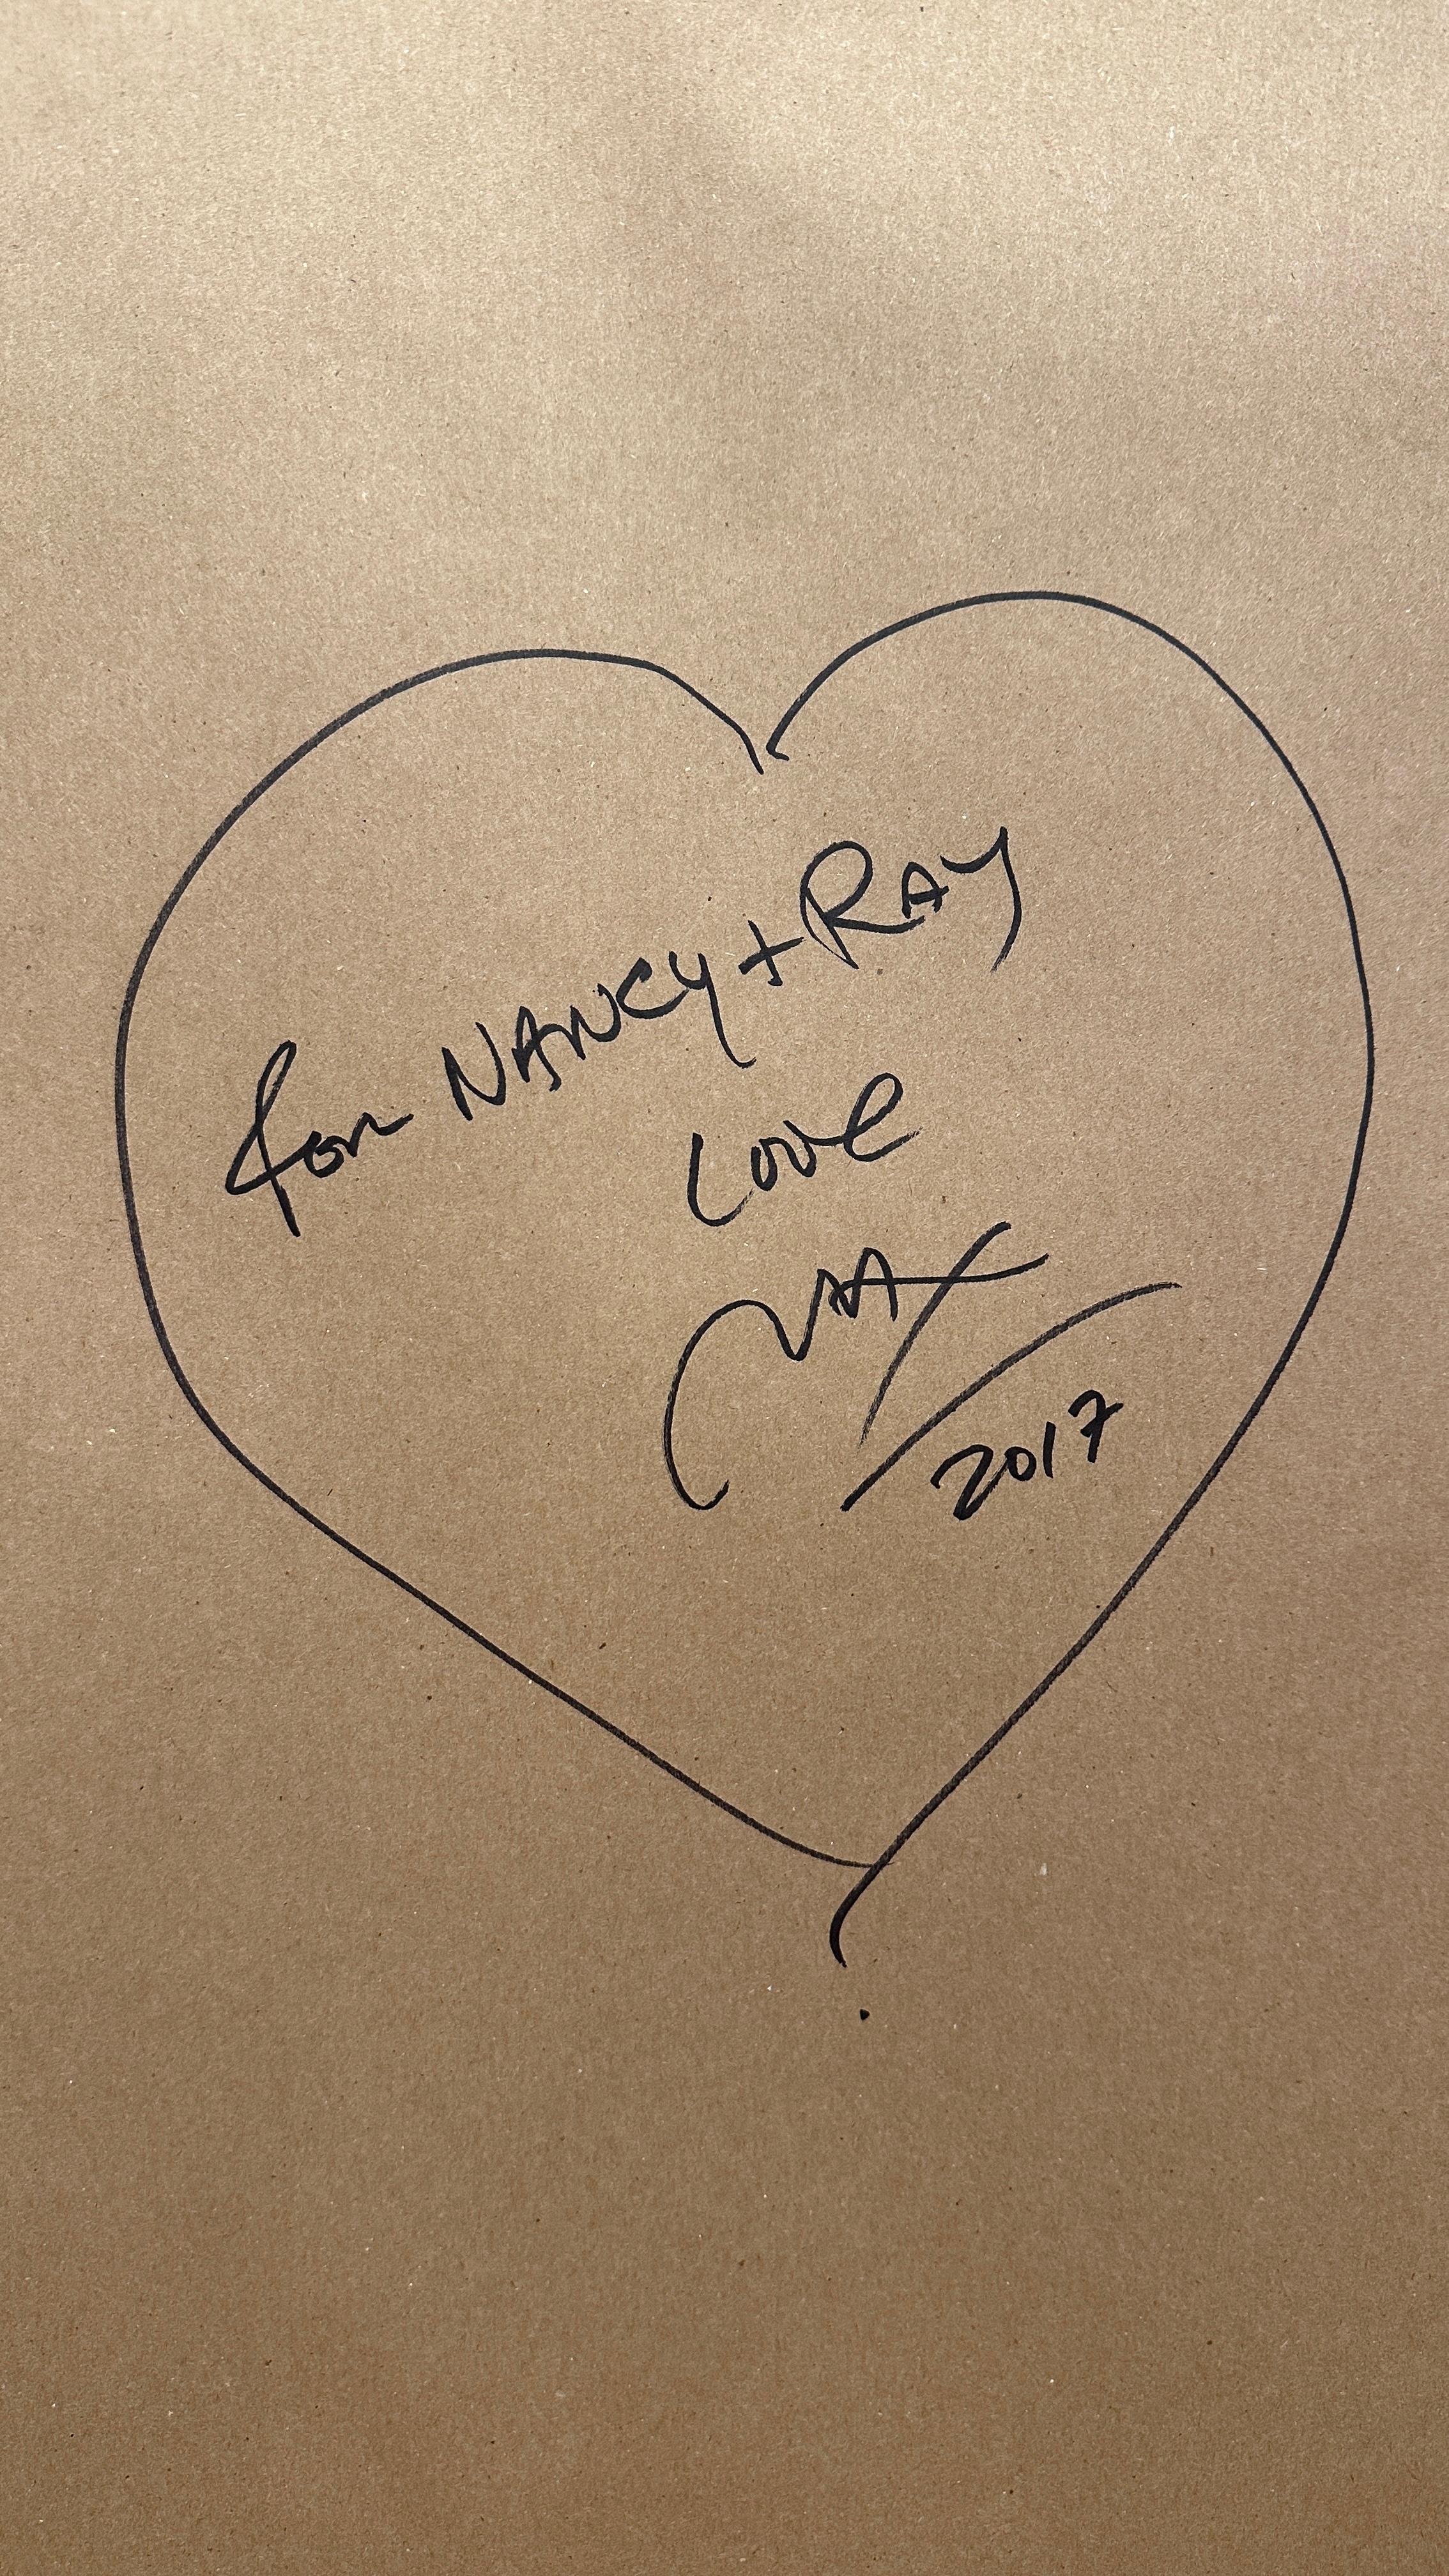 for NANCY + RAY
Love
MAX
2017